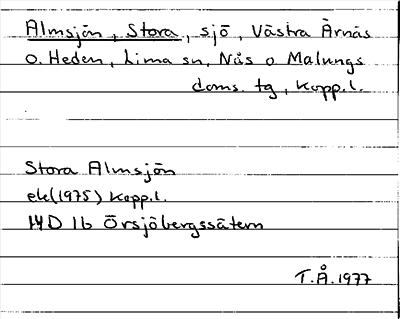 Almsjön, Stora, sjö, Västra Ärnäs
o. Heden, Lima sn, Nås o Malungs
doms. tg, Kopp.l.
Stora Almsjön
ek(1975) Kopp.l.
14D 1b Örsjöbergssätern
T.Å. 1977